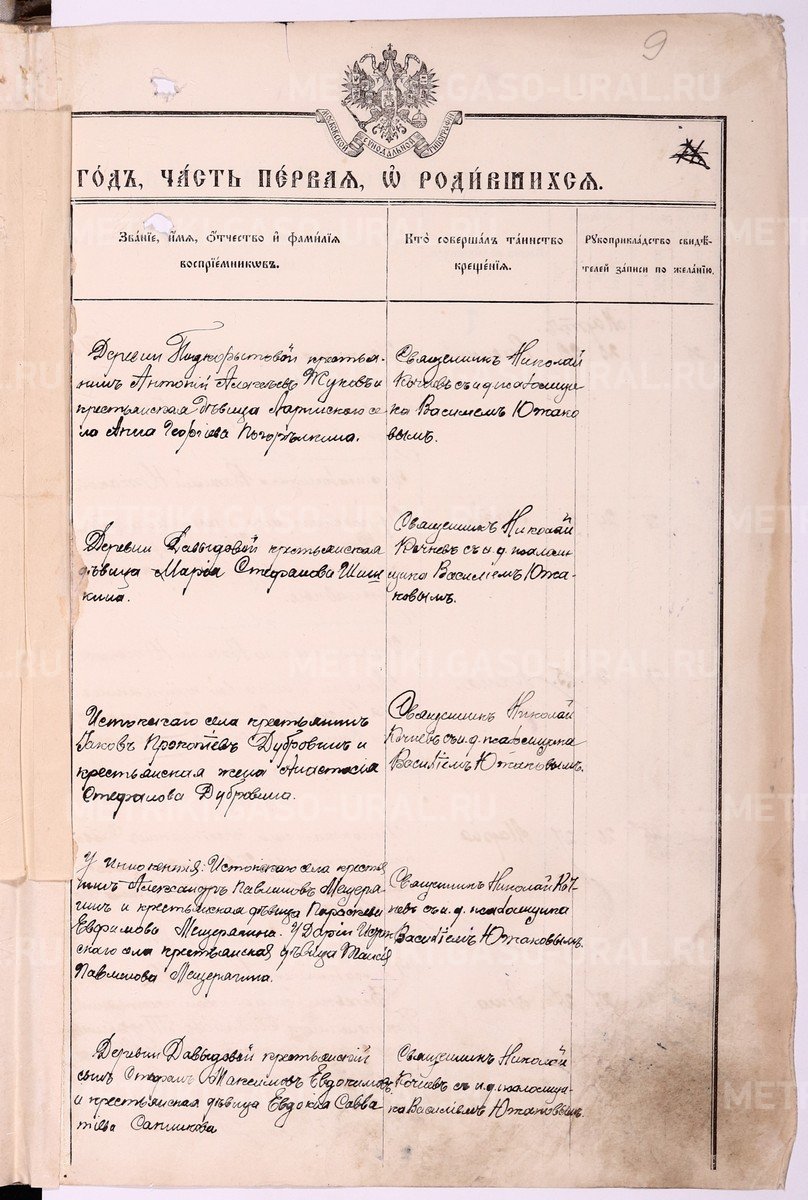 9
МОСКОВСКОЙ СѴНОДАЛЬНОЙ ТИПОГРАФІИ
ГО́ДЪ, ЧА́СТЬ ПЕ́РВАЯ, Ѽ РОДИ́ВШИХСѦ.
ЗВА́НІЕ, И҆́МЯ, Ѻ҆́ТЧЕСТВО И҆ ФАМИ́ЛІЯ
ВОСПРІЕ́МНИКѠВЪ.
КТО̀ СОВЕРША́ЛЪ ТА́ИНСТВО
КРЕЩЕ́НІЯ.
РУКОПРИКЛА́ДСТВО СВИДѢ́-
ТЕЛЕЙ ЗА́ПИСИ ПО ЖЕЛА́НІЮ.
Деревни Подкорытовой крестья-
нинъ Антоній Алексѣевъ Жуковъ и
крестьянская дѣвица се-
ла Анна Георгіева Погорѣлкина.
Священникъ Николай
Кочневъ съ и. д. псаломщи
ка Василіемъ Южако
вымъ.
Деревни Давыдовой крестьянская
дѣвица Марія Стефанова Шиш
кина.
Священникъ Николай
Кочневъ съ и. д. псалом
щика Василіемъ Южа-
ковымъ.
Истокскаго села крестьянинъ
Іаковъ Прокопіевъ Дубровинъ и
крестьянская жена Анастасія
Стефанова Дубровина.
Священникъ Николай
Кочневъ съ и. д. псаломщика
Василіемъ Южаковымъ.
У Иннокентія: Истокскаго села крестья
нинъ Александръ Павлиновъ Мещеря-
гинъ и крестьянская дѣвица Параскева
Евфимова Мещерягина. У Даріи Исток
скаго села крестьянская дѣвица Таисія
Павлинова Мещерягина.
Священникъ Николай Коч-
невъ съ и. д. псаломщика
Василіемъ Южаковымъ.
Деревни Давыдовой крестьянскій
сынъ Стефанъ Максимовъ Евдокимовъ
и крестьянская дѣвица Евдокія Савва-
тіева Санникова
Священникъ Николай
Кочневъ съ и. д. псаломщи-
ка Василіемъ Южаковымъ.
METRIKI.GASO-URAL.RU